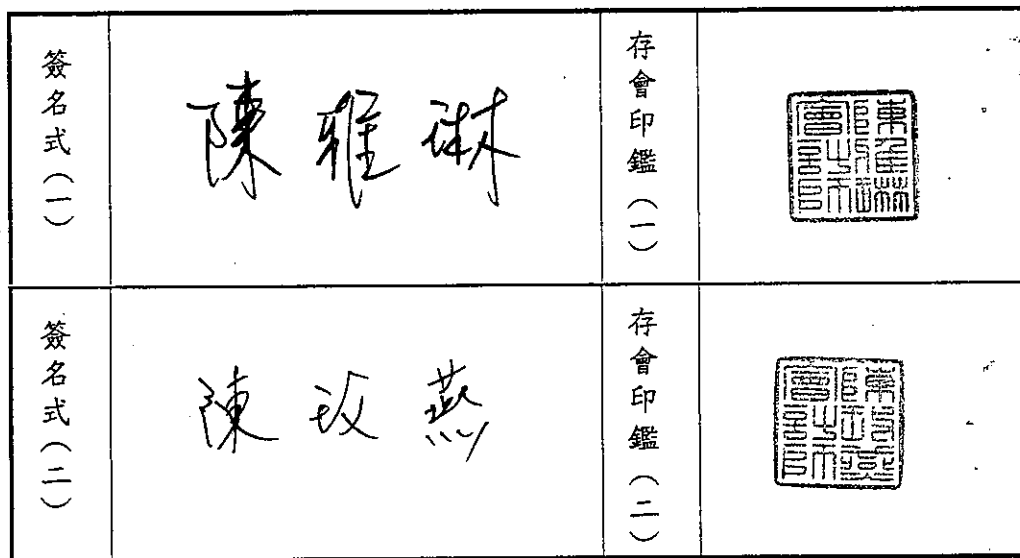 簽名式（一）
陳雅琳
存會印鑑（一）
陳雅琳會計師印
簽名式（二）
陳玫燕
存會印鑑（二）
陳玫燕會計師印